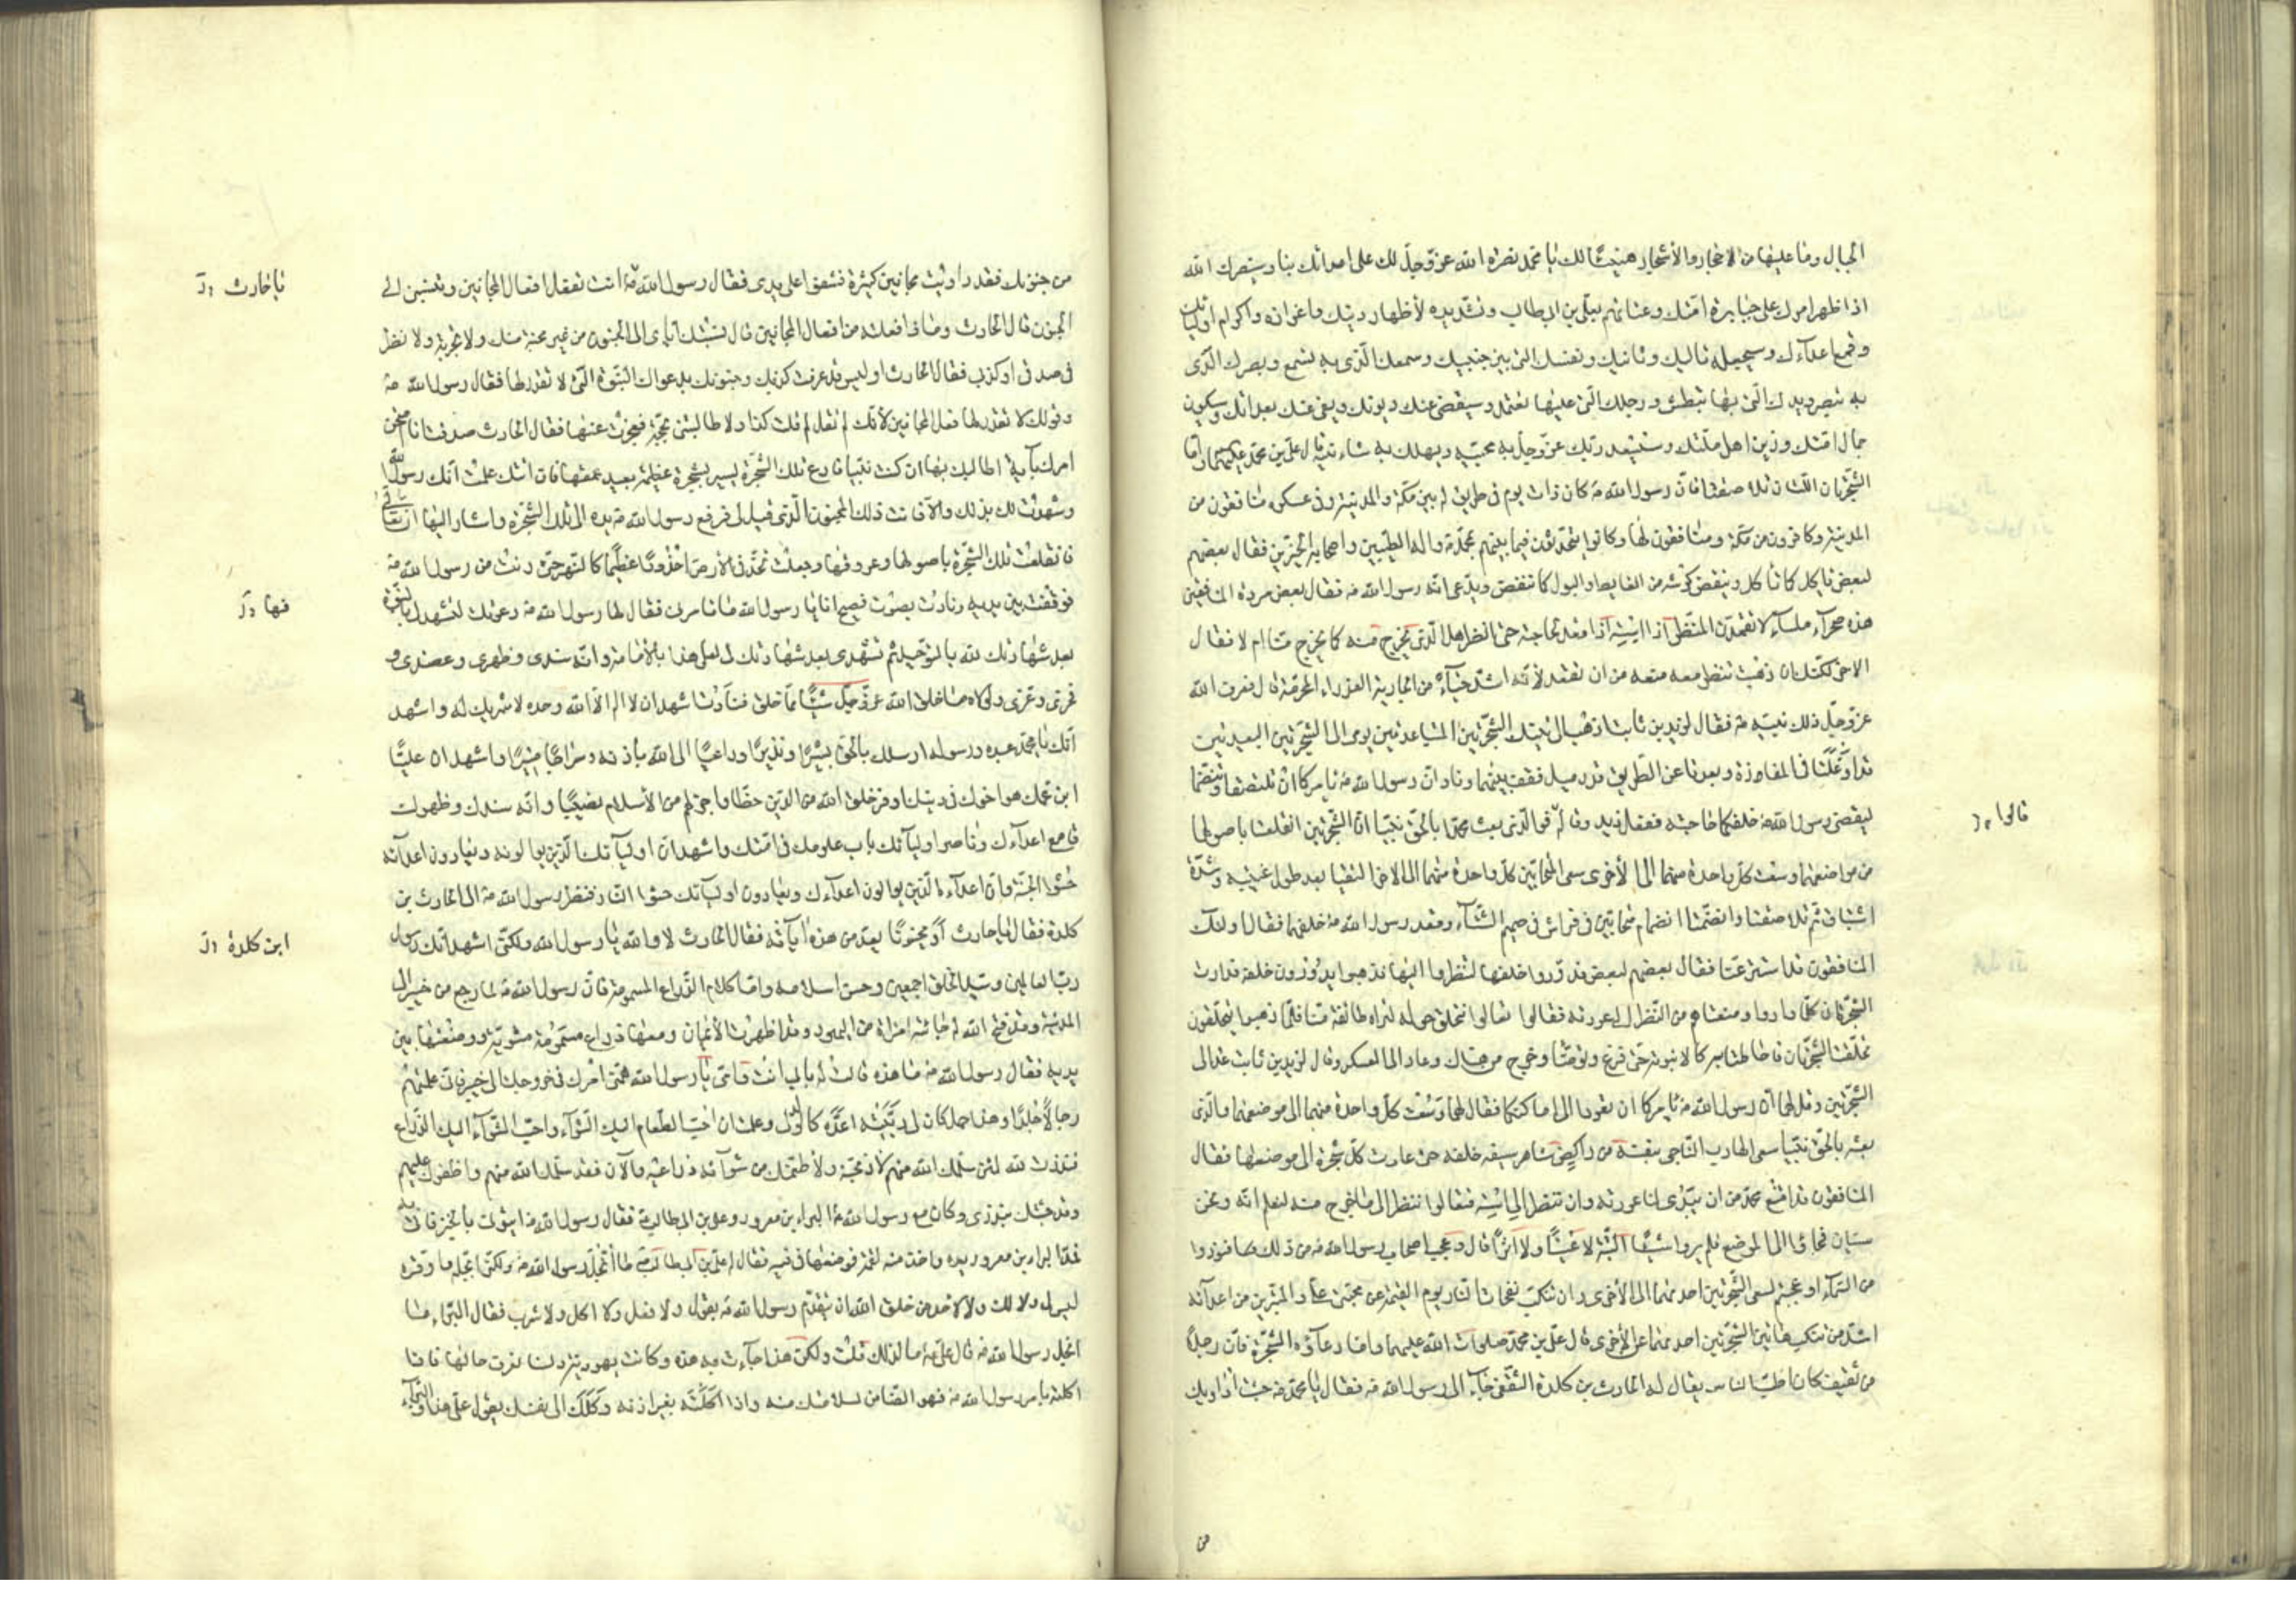 الجبال وما عليها من الاحجار والأشجار هنيئا لك يا محمد نصرة الله عز وجل لك على اعدائك بنا وسينصرك الله
اذا ظهر امرك على جبابرة امتك وعتاتهم بعلي بن ابيطالب وتشديده لأظهار دينك واعزازه واكرام اوليائك
وقمع اعداءك وسيجعله تاليك وثانيك ونفسك التي بين جنبيك وسمعك الذي به تسمع وبصرك الذي
به تبصر ويدك التي بها تبطش ورجلك التي عليها تعتمد وسيقضي عنك ديونك ويفي عنك بعداتك وسيكون
جمال امتك وزين اهل ملتك وسيسعد ربك عز وجل به محبيه ويهلك به شانئيه قال علي بن محمد عليهما واما
الشجرتان اللتان تلاصقتا فان رسول الله ص كان ذات يوم في طريق له بين مكة والمدينة وفي عسكره منافقون من
المدينة وكافرون من مكة ومنافقون لها وكانوا يتحدثون فيما بينهم بمحمد ص واله الطيبين واصحابه الخيرين فقال بعضهم
لبعض ياكل كما ناكل وينفض كرشه من الغايط والبول كما ننفض ويدعي انه رسول الله ص فقال بعض مردة المنافقين
هذه صحراء ملساء لاتعمدن النظر الى استه اذا قعد لحاجته حتى انظر هل الذي يخرج منه كما يخرج منا ام لا فقال
الاخر لكنك ان ذهبت تنظر معه منعه من ان يقعد لأنه اشد حياء من الجارية العذراء المحرمة قال فعرف الله
عز وجل ذلك نبيه ص فقال لزيد بن ثابت اذهب الى تينك الشجرتين المتباعدتين يومي الى الشجرتين البعيدتين
قد اوغلتا في المفازة وبعدتا عن الطريق قدر ميل فقف بينهما وناد ان رسول الله ص يامركما ان تلتصقا وتنضما
ليقضي رسول الله ص خلفكما حاجته ففعل زيد وقاله فوالذي بعث محمدا بالحق نبيا ان الشجرتين انقلعتا باصولها
من مواضعهما وسعت كل واحدة منهما الى الأخرى سعي المتحابين كل واحدة منهما الى الاخر التقيا بعد طول غيبته وشدة
اشتياق ثم تلاصقتا وانضمتا انضمام متحابين في فراش في صميم الشتاء وقعد رسول الله ص خلفهما فقال اولئك
المنافقون قد استتر عنا فقال بعضهم لبعض فدوروا خلفها لننظروا اليها فذهبوا يدورون خلفه فدارت
الشجرتان كلما داروا ومنعتاهم من النظر الى عورته فقالوا تعالوا نتحلق حوله لتراه طائفة منا فلما ذهبوا يتحلقون
تحلقت الشجرتان فاحاطتا به كالانبوبة حتى فرغ وتوضأ وخرج من هناك وعاد الى العسكر وقال لزيد بن ثابت عد الى
الشجرتين وقل لهما ان رسول الله ص يامركما ان تعودا الى اماكنكما فقال لهما وسعت كل واحدة منهما الى موضعها والذي
بعثه بالحق نبيا سعي الهارب الناجي بنفسه من راكض شاهر سيفه خلفه حتى عادت كل شجرة الى موضعها فقال
المنافقون قد امتنع محمد من ان يبدي لنا عورته وان ننظر الى استه فتعالوا ننظر الى ما خرج منه لنعلم انه ونحن
سيان فجاؤا الى الموضع فلم يروا شيئا البتة لا عينا ولا اثرا قال وعجب اصحاب رسول الله ص من ذلك فنودوا
من السماء او عجبتم لسعي الشجرتين احديهما الى الأخرى ان
اشد من تنكب هاتين الشجرتين احديهما عن الأخرى قال علي بن محمد صلوات الله عليهما واما دعاؤه الشجرة فان رجلا
من ثقيف كان اطب الناس يقال له الحارث بن كلدة الثقفي جاء الى رسول الله ص فقال يا محمد ص جئت اداويك
قالوا
من
من جنونك فقد داويت مجانين كثيرة فشفوا على يدي فقال رسول الله ص انت تفعل افعال المجانين وتنسبني الى
الجنون قال الحارث وماذا فعلته من افعال المجانين قال نسبتك اياي الى الجنون من غير محنة منك ولا تجربة ولا نظر
في صدقي او كذبي فقال الحارث اوليس قد عرفت كذبك وجنونك بدعواك النبوة التي لا تقدر لها فقال رسول الله ص
وقولك لا تقدر لها فعل المجانين لأنك لم تقل لم قلت كذا ولا طالبتني بحجة فعجزت عنها فقال الحارث صدقت انا امتحن
امرك بآية اطالبك بها ان كنت نبيا فادع تلك الشجرة يشير بشجرة عظيمة بعيد عمقها فان اتتك علمت انك رسول الله
وشهدت لك بذلك والا فانت ذلك المجنون الذي قيل لي فرفع رسول الله ص يده الى تلك الشجرة واشار اليها ان تعالي
فانقلعت تلك الشجرة باصولها وعروقها وجعلت تخد في الأرض اخدودا عظيما كالنهر حتى دنت من رسول الله ص
فوقفت بين يديه ونادت بصوت فصيح ها انا ذا يا رسول الله ما تامرني فقال لها رسول الله ص دعوتك لتشهد لي بالنبوة
بعد شهادتك لله بالتوحيد ثم تشهدي بعد شهادتك لي لعلي هذا بالأمامة وانه سندي وظهري وعضدي و
فخري وعزي ولولاه ما خلق الله عز وجل شيئا مما خلق فنادت اشهد ان لا اله الا الله وحده لا شريك له واشهد
انك يا محمد عبده ورسوله ارسلك بالحق بشيرا ونذيرا وداعيا الى الله بأذنه وسراجا منيرا واشهد ان عليا
ابن عمك هو اخوك في دينك اوفر خلق الله من الدين حظا واجزلهم من الأسلام نصيبا وانه سندك وظهرك
قامع اعداءك وناصر اوليائك باب علومك في امتك واشهد ان اوليآئك الذين يوالونه ويعادون اعدائه
حشو الجنة وان اعداءه الذين يوالون اعداءك ويعادون اوليآئك حشو النار فنظر رسول الله ص الى الحارث بن
كلدة فقال يا حارث أو مجنونا يعد من هذه آياته فقال الحارث لا والله يا رسول الله ولكني اشهد انك رسول
رب العالمين وسيد الخلق اجمعين وحسن اسلامه واما كلام الذراع المسمومة فان رسول الله ص لما رجع من خيبر الى
المدينة وقد فتح الله له جائته امراة من اليهود وقد اظهرت الأيمان ومعها ذراع مسمومة مشوية ووضعتها بين
يديه فقال رسول الله ص ما هذه قالت له بابي انت وامي يا رسول الله همني امرك في خروجك الى خيبر فاني علمتهم
رجالا جلدا وهذا حمل كان لي ربيته اعده كالولد وعلمت ان احب الطعام اليك الشوآء واحب الشوآء اليك الذراع
فنذرت لله لئن سلمك الله منهم لأذبحنه ولأطعمنك من شوآئه ذراعيه والآن فقد سلمك الله منهم واظفرك عليهم
وقد جئتك بنذري وكان مع رسول الله ص البراء بن معرور وعلي بن ابيطالب فقال رسول الله ص ايتوني بالخبز فاتي به
فمد البراء بن معرور يده واخذ منه لقمة فوضعها في فيه فقال له علي بن ابيطالب يا براء لا تتقدم رسول الله ص
ليس لي ولا لك ولا لاحد من خلق الله ان يتقدم رسول الله ص بقول ولا فعل ولا اكل ولا شرب فقال البراء ما
ابخل رسول الله ص قال علي ع ما لذلك قلت ولكن هذا جاءت به هذه وكانت يهودية ولسنا نعرف حالها فاذا
اكلته بامر رسول الله ص فهو الضامن لسلامتك منه واذا اكلته بغير اذنه وكلك الى نفسك يقول علي هذا والبراء
يا حارث
فها
ابن كلدة